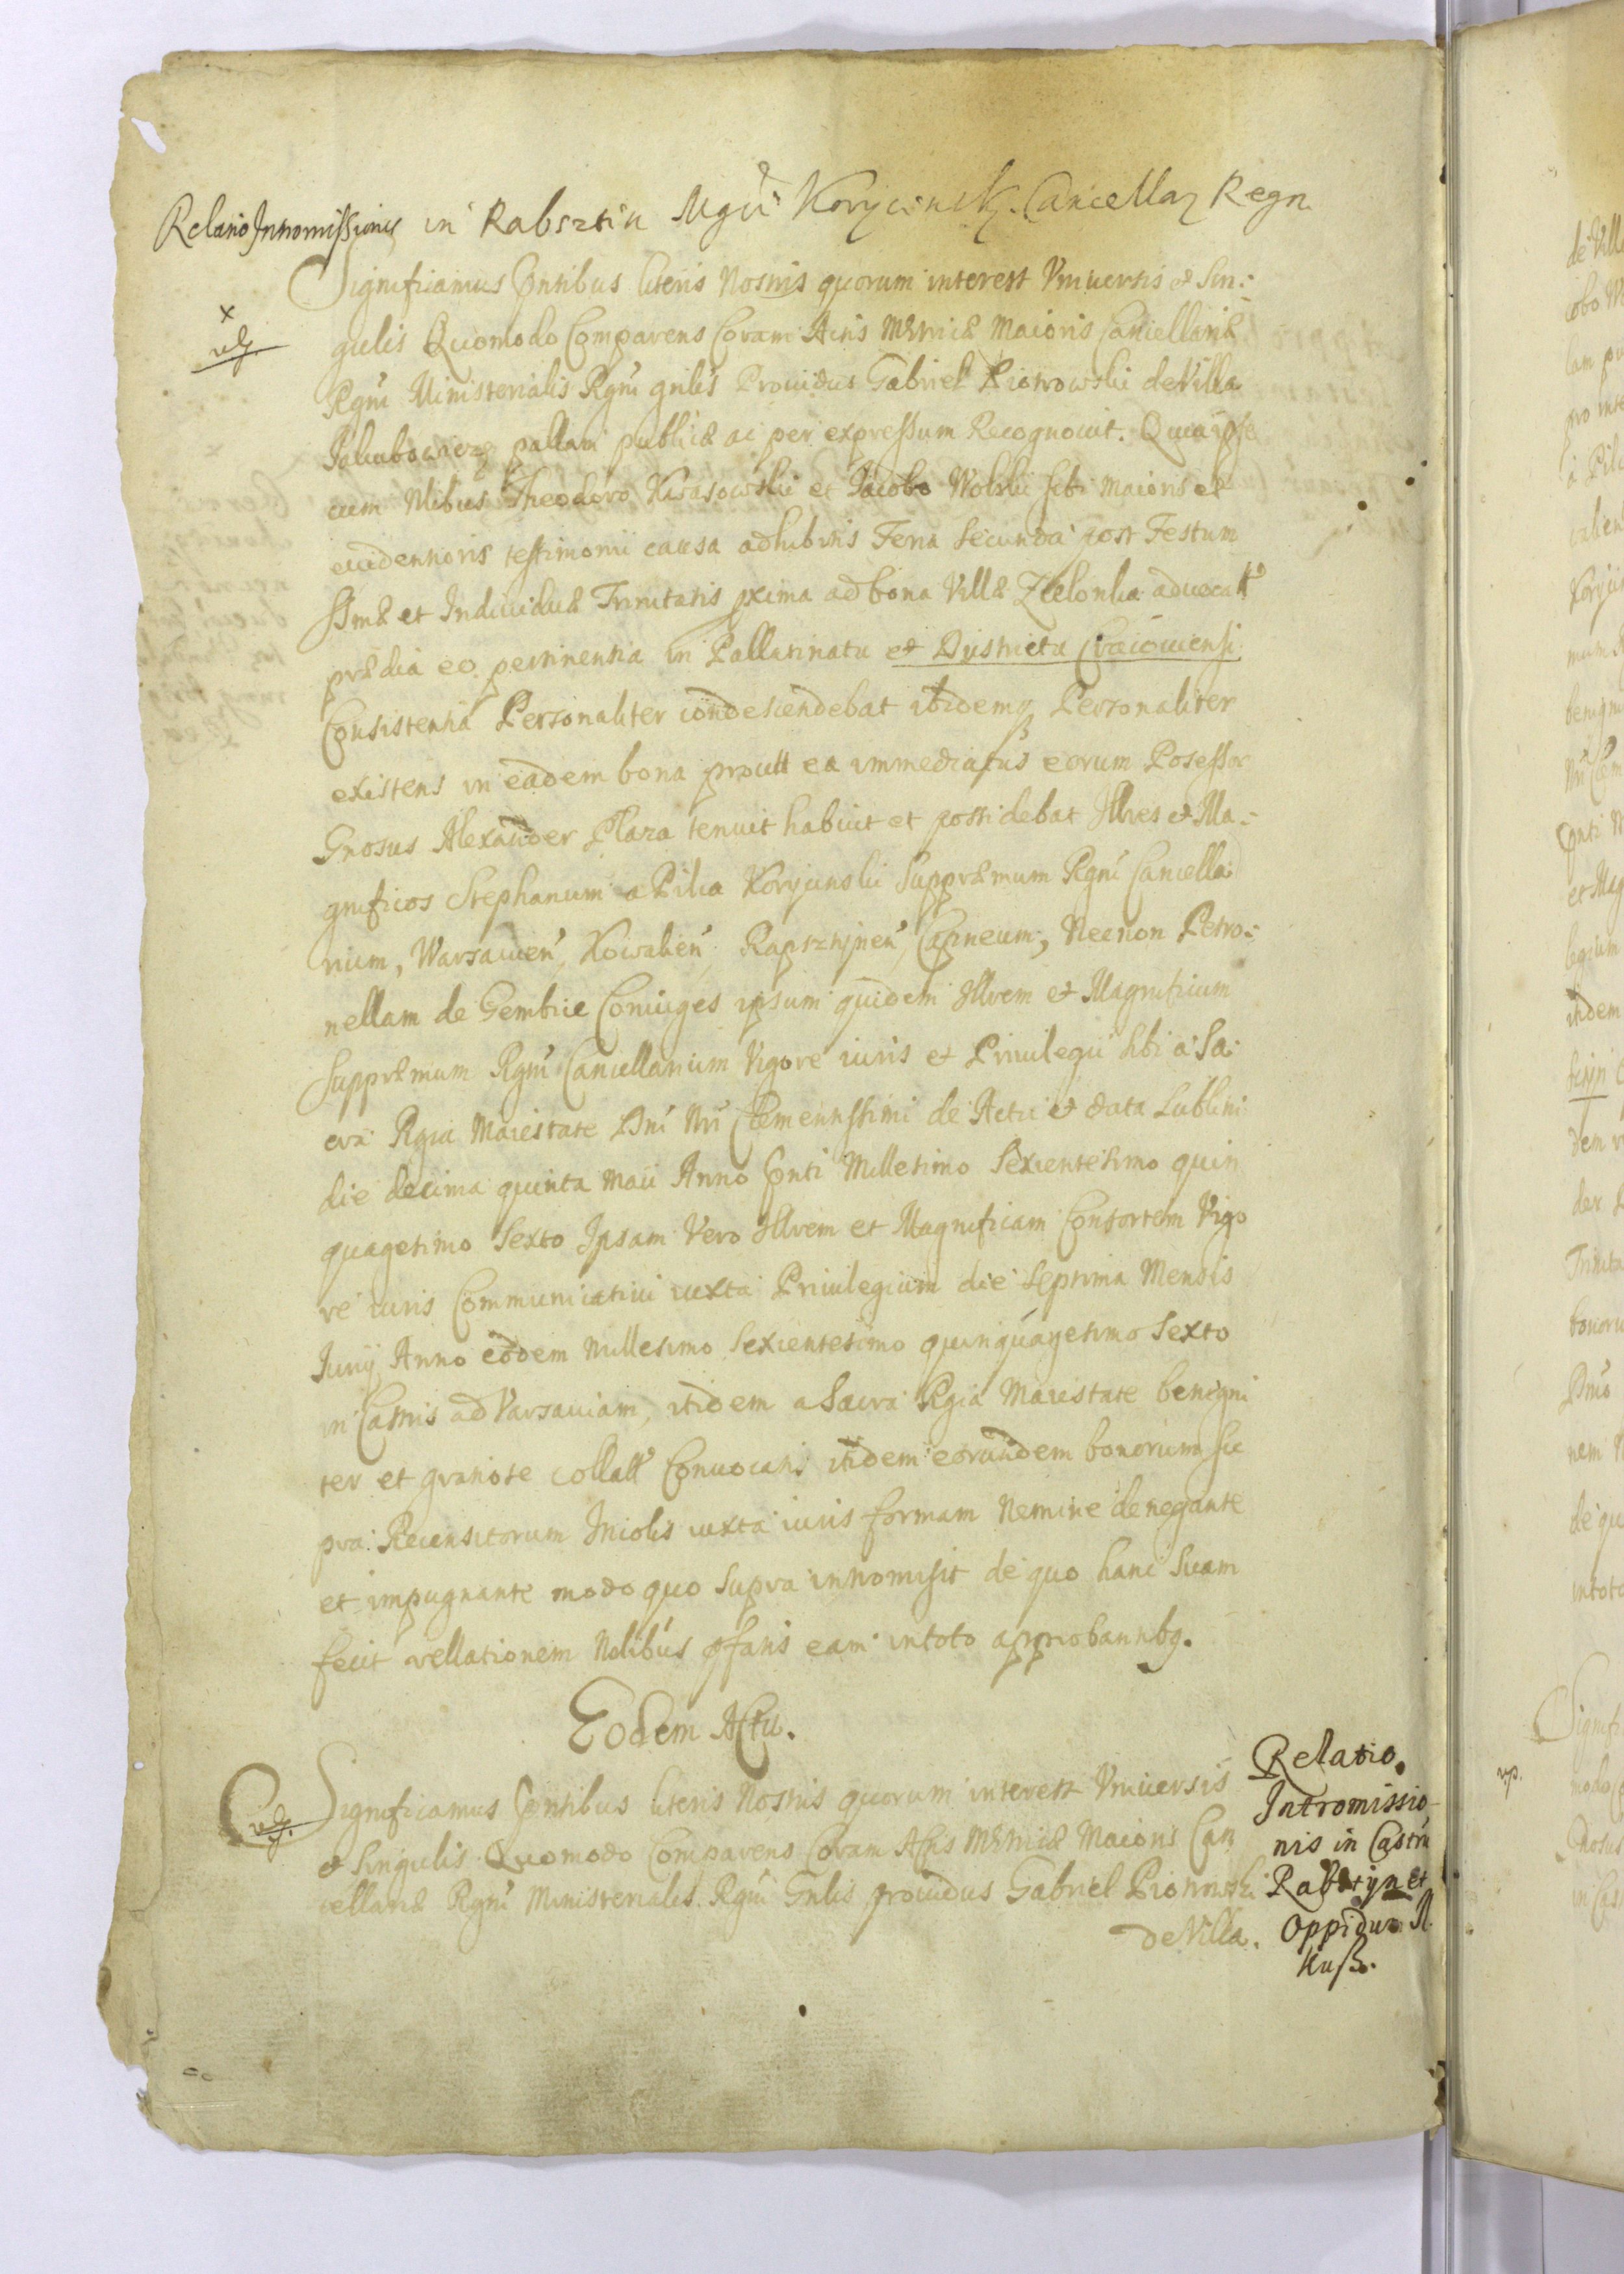 Relatio Intromissionis in Rabsztin Mgci Korycinski Cancellarij Regn
Significamus pntibus literis Nostris quorum interest Vniuersis et Sin-
x
vg.
gulis Quomodo Comparens Coram Actis Metricæ Maioris Cancellariæ
Rgni Ministerialis Rgni gnlis Prouidus Gabriel Piotrowski de Villa
pallam publicæ ac per expressum Recognouit. Quia ipse
cum Nlibus Theodoro Kwasowski et Jacobo Wolski sibi Maioris et
euidentioris testimonii causa adhibitis Feria Secunda post Festum
SSmæ et Indiuiduæ Trinitatis pxima ad bona Villæ Zielonka aduocatt
prædia eo pertinentia in Pallatinatu et Districtu Cracouiensi
Consistentia Personaliter condescendebat ibidemq Personaliter
existens in eadem bona proutt ea immediatus eorum Posessor
Gnosus Alexander Płaza tenuit habuit et possidebat Illres et Ma-
gnificos Stephanum a Pilca Koryczinski Suppræmum Rgni Cancella
rium, Warsauien, Kowalien, Rapsztynen, Capneum, Necnon Petro-
nellam de Gembice Coniuges ipsum quidem Illrem et Magnificum
Suppræmum Rgni Cancellarium Vigore iuris et Priuilegii sibi a Sa
cra Rgia Maiestate Dni Nri Clementissimi de Actu et data Lublini
die decima quinta Maii Anno pnti Millesimo Sexcentesimo quin
quagesimo Sexto Ipsam Vero Illrem et Magnificam Consortem Vigo
re iuris Communicatiui iuxta Priuilegium die Septima Mensis
Iunij Anno eodem Millesimo Sexcentesimo quinquagesimo Sexto
in Castris ad Varsauiam, itidem a Sacra Rgia Maiestate benigni
ter et gratiose collatt Conuocatis itidem eorundem bonorum su
pra Recensitorum Incolis iuxta iuris formam Nemine denegante
et impugnante modo quo Supra intromisit de quo hanc Suam
fecit rellationem Nobilibus pfatis eam in toto approbantibq.
Eodem Actu.
vg.
Significamus pntibus literis Nostris quorum interest Vniuersis
et Singulis Quomodo Comparens Coram Actis Metricæ Maioris Can
cellariæ Rgni Ministerialis Rgni Gnlis prouidus Gabriel Piotrowski
de Villa.
Relatio.
Intromissio-
nis in Castru
Rabstyn et
Oppidum Il
kusz.